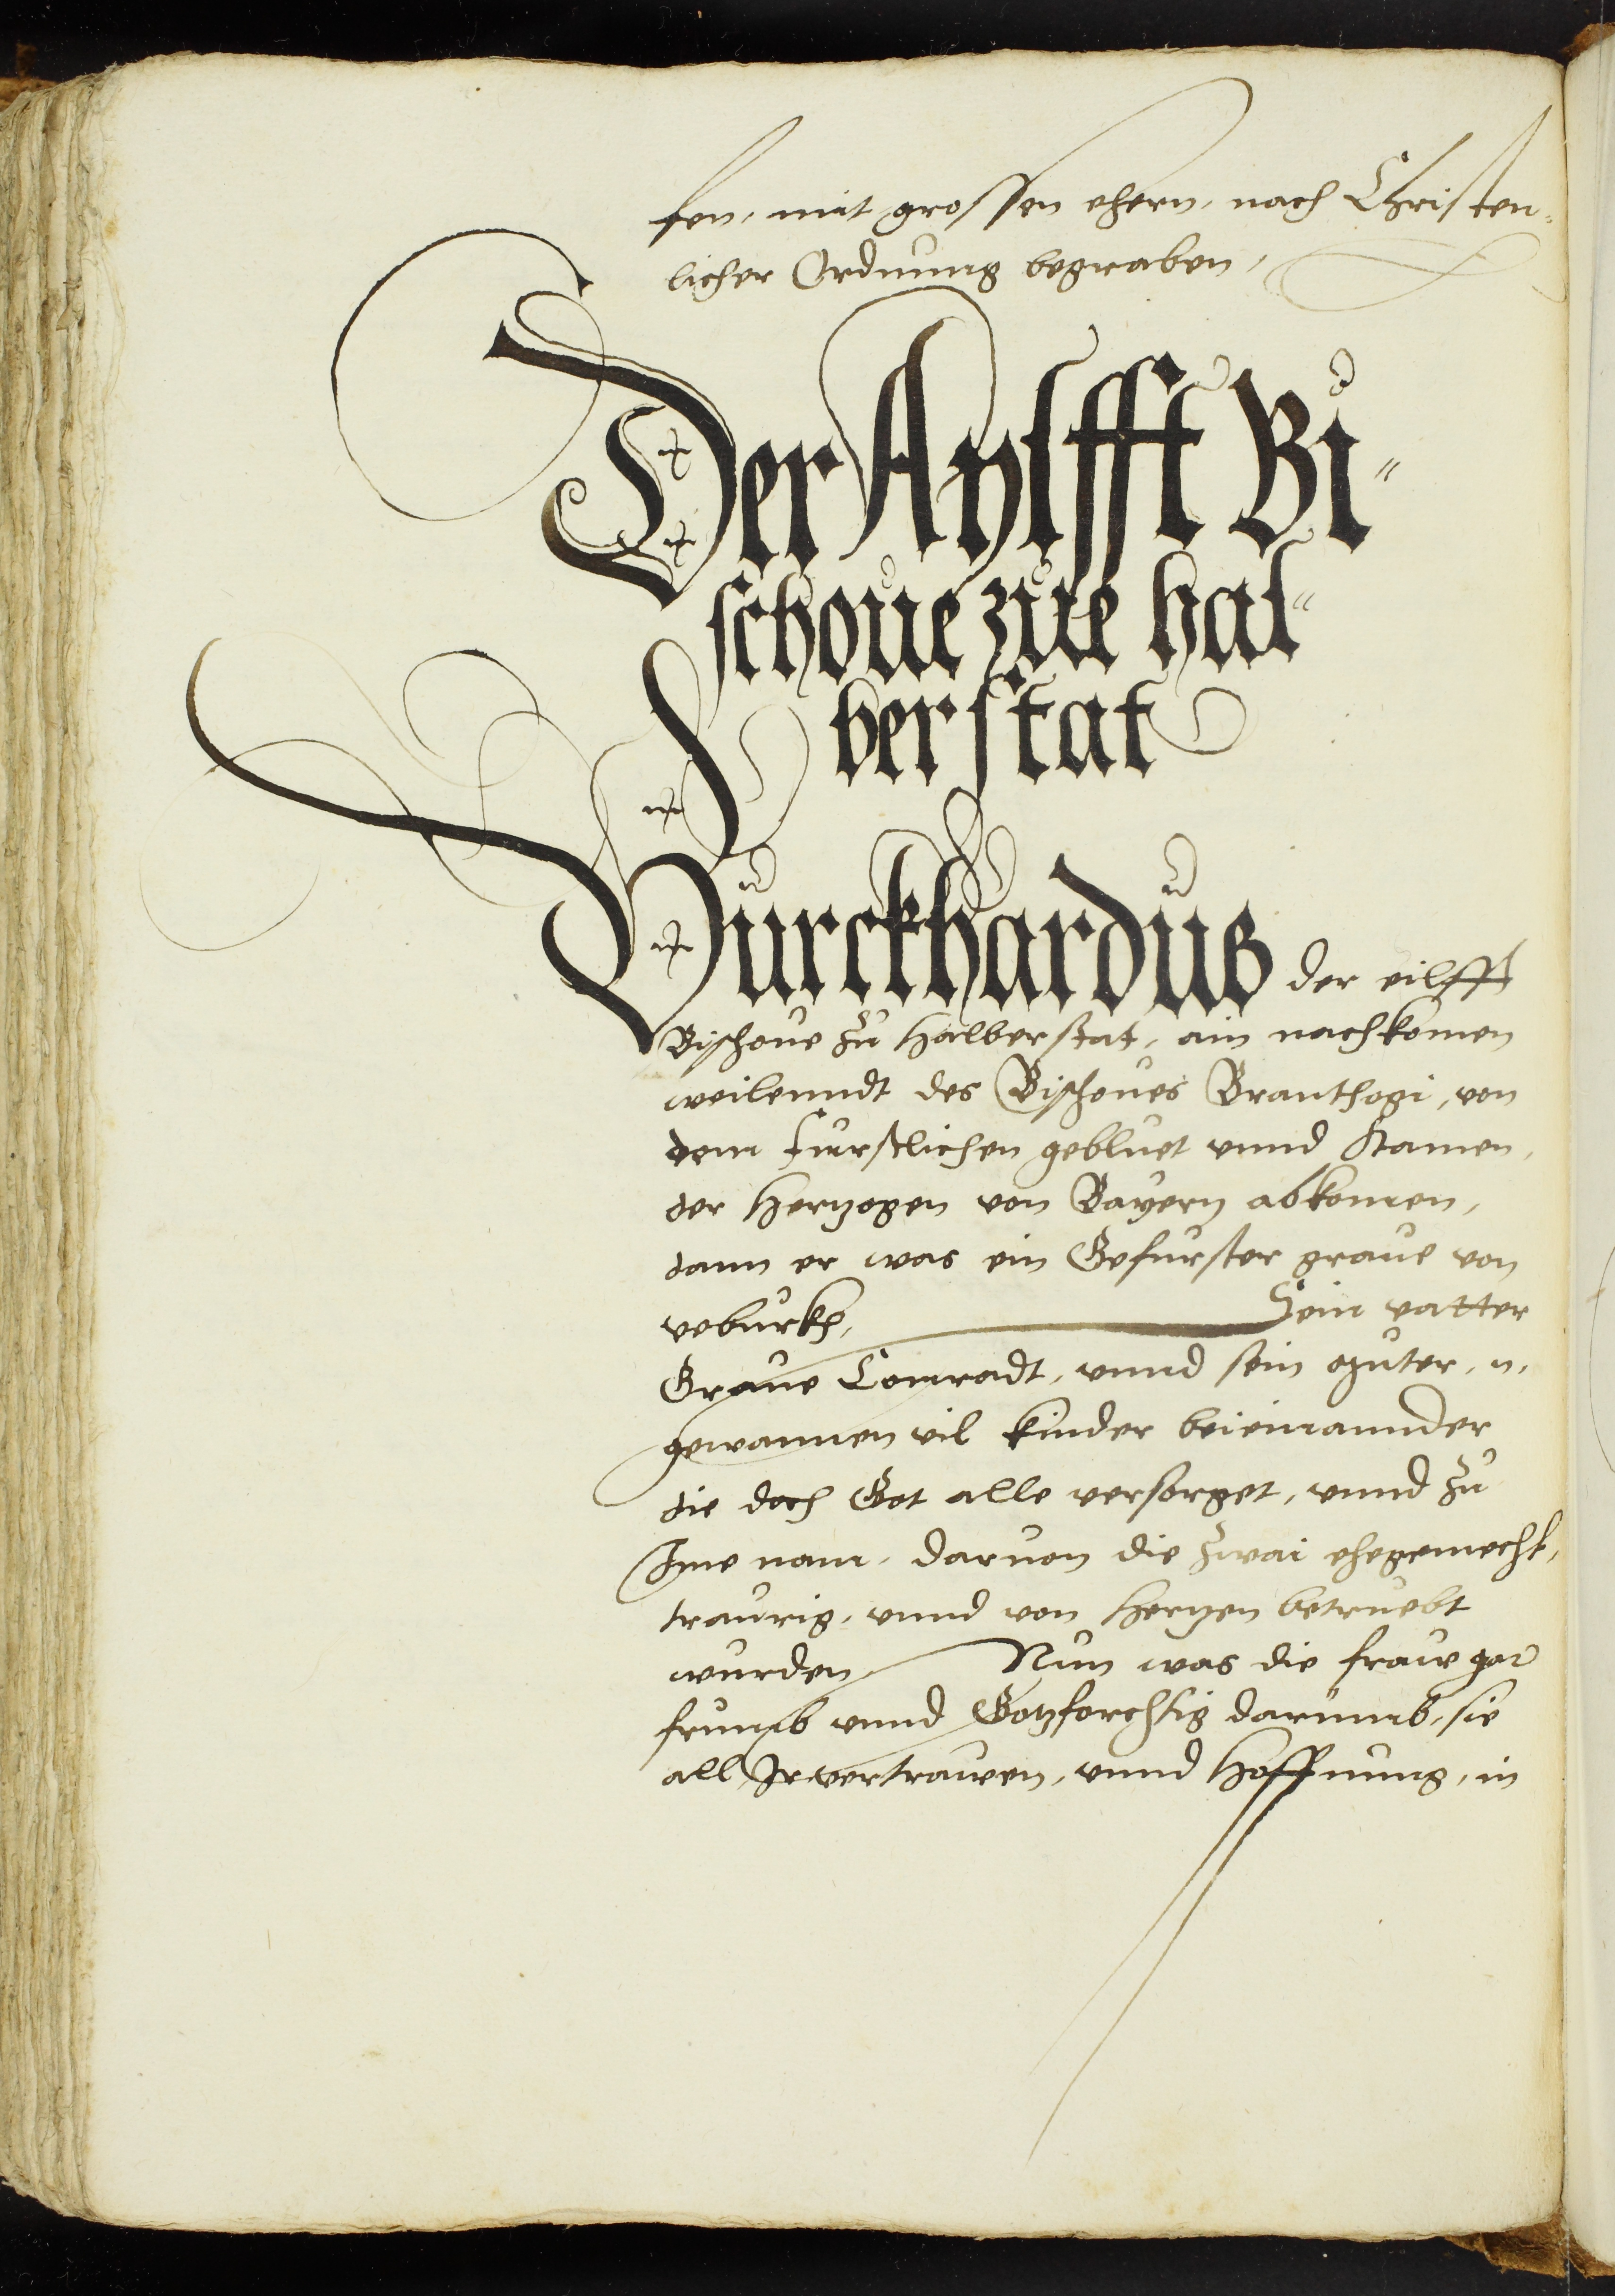 sen, mit grossen ehern, nach Christen-
licher Ordnung begraben,
Der Aylfft Bi-
schoue zue hal-
berstat
Burckhardus der eilfft
Bischoue zu Halberstat, ain nachkomen
weilenndt des Bischoues Branthogi, von
dem furstlichen gebluet vnnd Stamen,
der Hertzogen von Bayern abkomen,
dann er was ein Gefurster graue von
veburkh, Sein vatter
Graue Conradt, vnnd sein muter, n,
gewannen vil kinder beieinannder
die doch Got alle versorget, vnnd zu
Ime nam, daruon die zwai ehegemecht,
traurig, vnnd von Hertzen betruebt
wurden, Nun was die frauw gar
frumb vnnd Gotzforchtig darumb, sie
all Ir vertrawen, vnnd Hoffnung, in